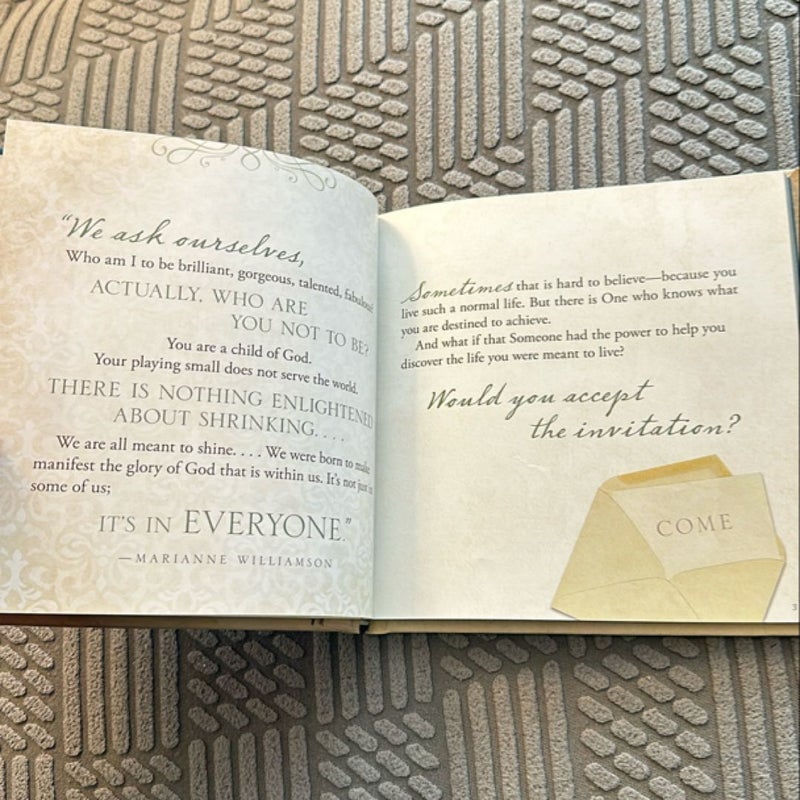 "We ask ourselves,
Who am I to be brilliant, gorgeous, talented,
ACTUALLY, WHO ARE
YOU NOT TO BE?
You are a child of God.
Your playing small does not serve the world.
THERE IS NOTHING ENLIGHTENED
ABOUT SHRINKING. . . .
We are all meant to shine. . . . We were born to make
manifest the glory of God that is within us. It's not just in
some of us;
IT'S IN EVERYONE."
—MARIANNE WILLIAMSON
Sometimes that is hard to believe—because you
live such a normal life. But there is One who knows what
you are destined to achieve.
And what if that Someone had the power to help you
discover the life you were meant to live?
Would you accept
the invitation?
COME
3